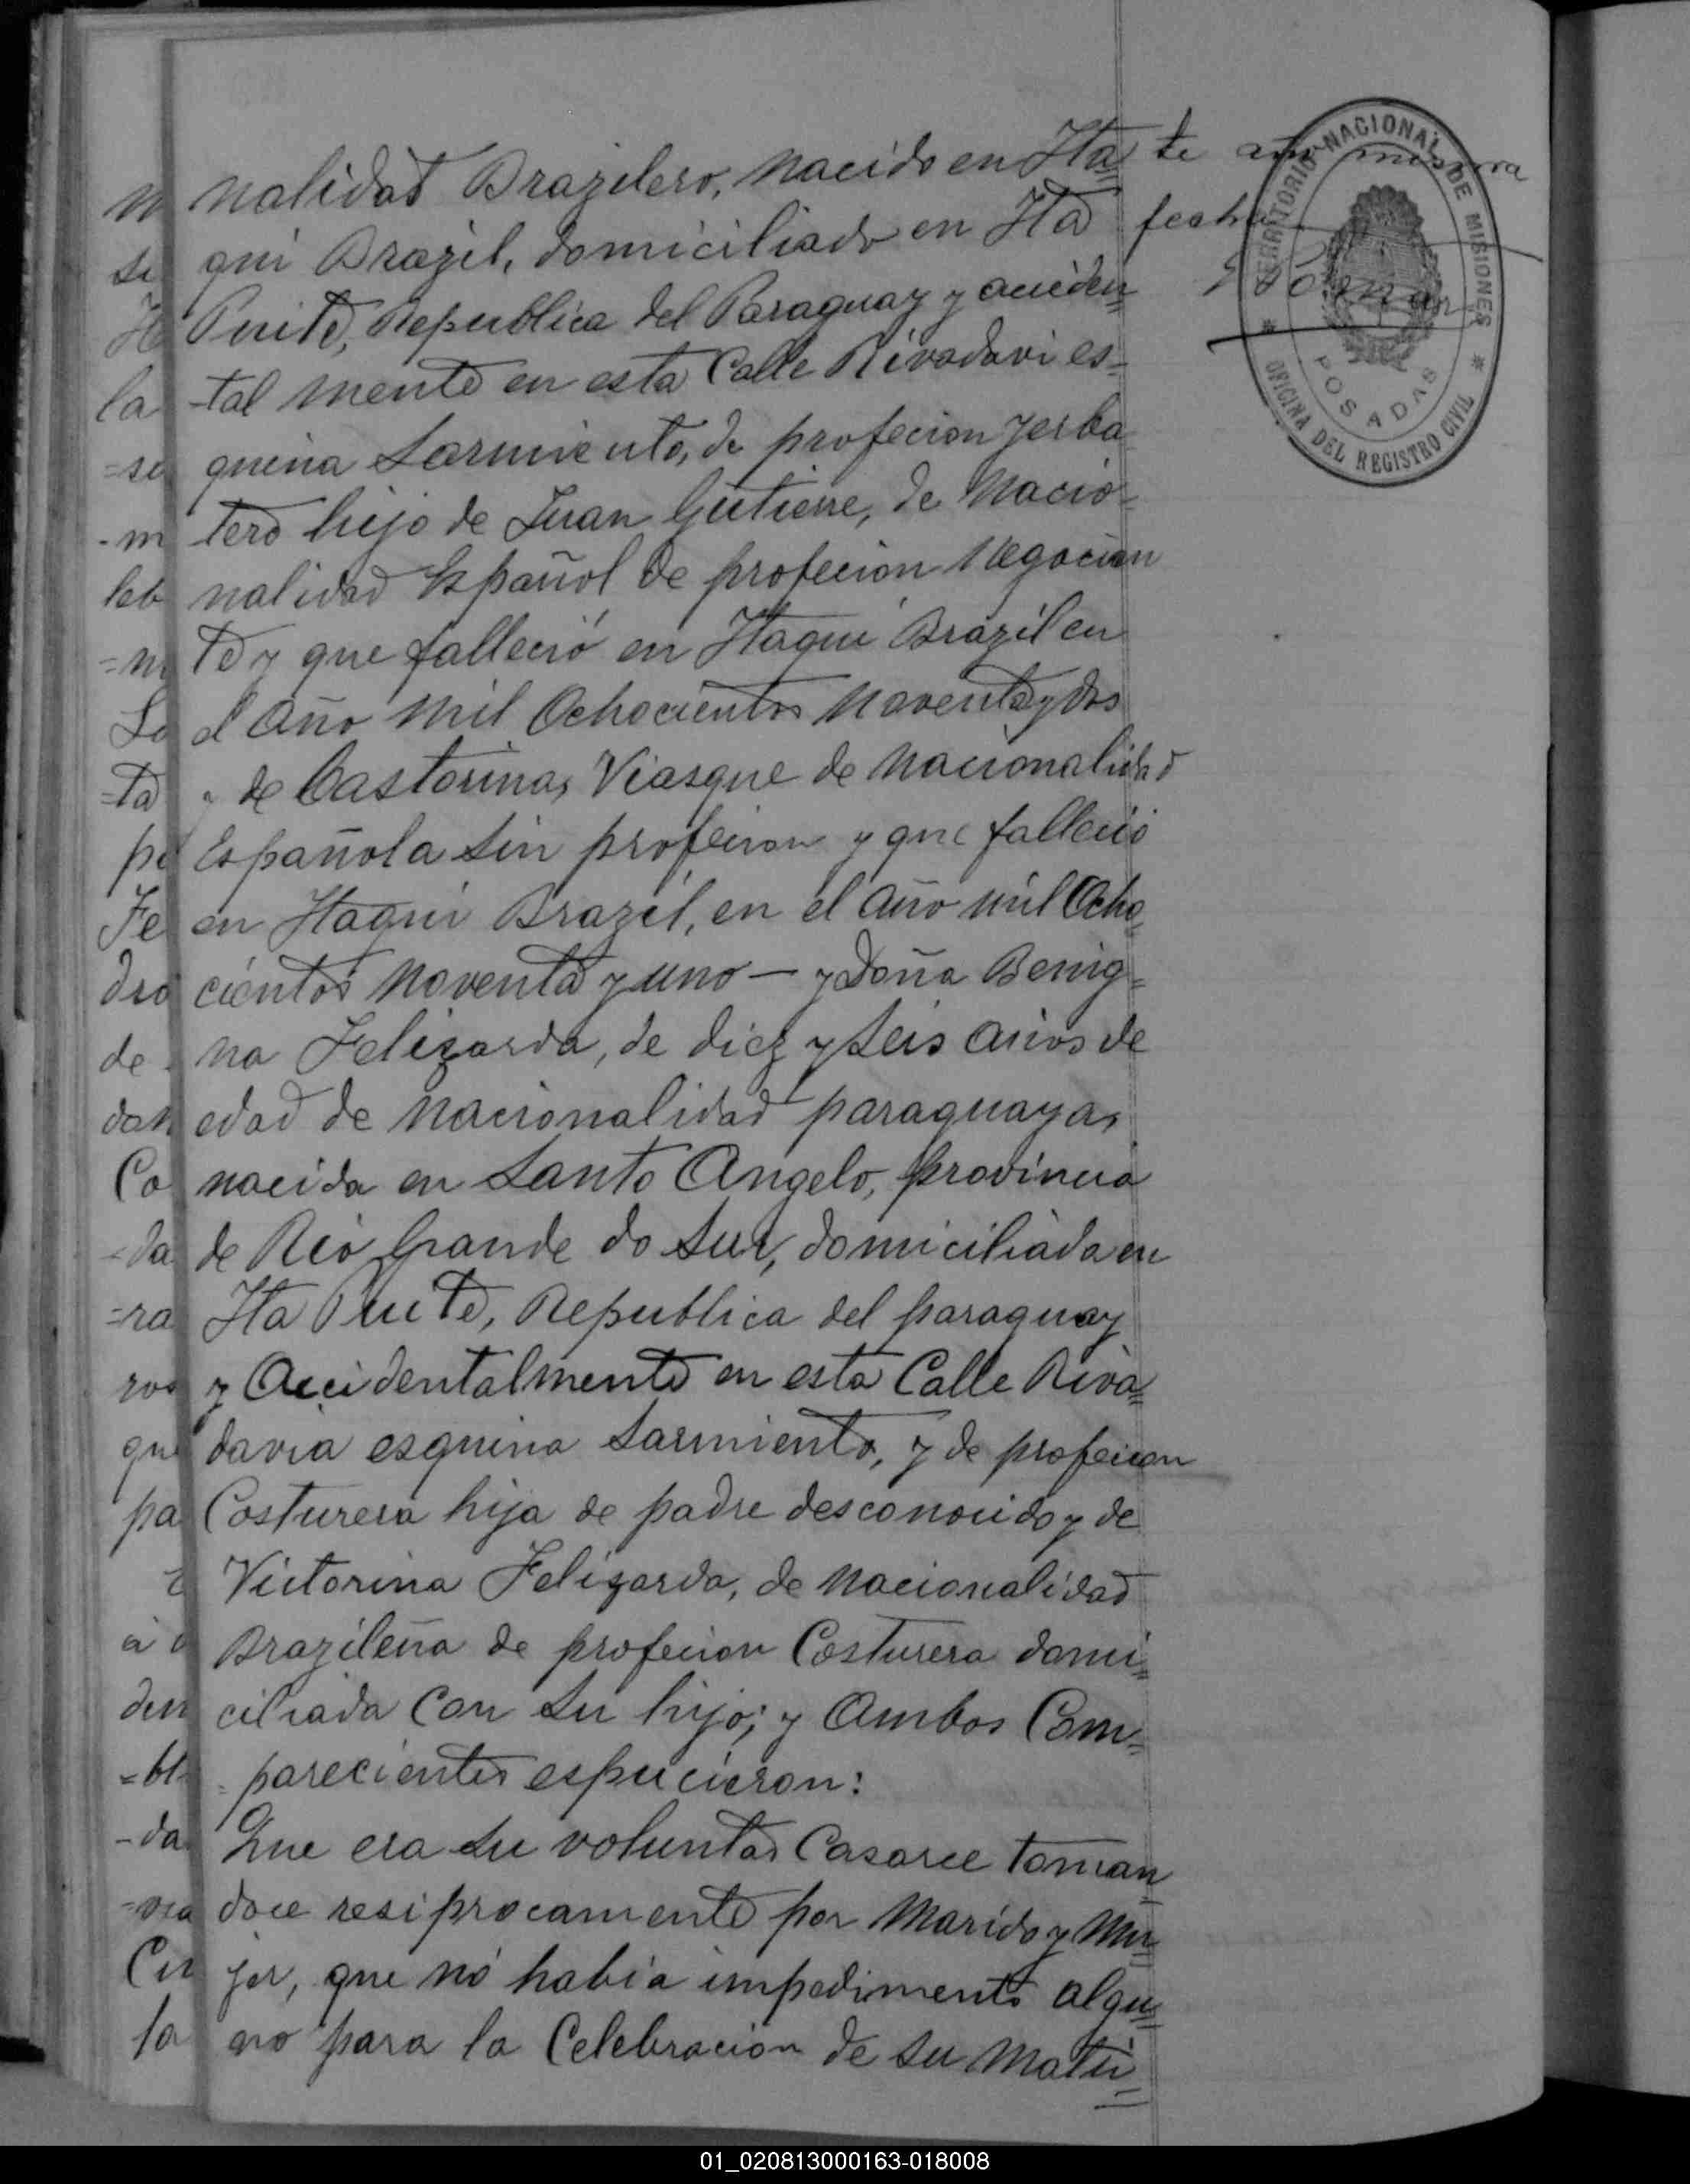 nalidad Brazilero, nacido en Ita=
qui Brazil, domiciliado en Ita
Puite, Republica del Paraguay y acciden=
tal mente en esta Calle Rivadavi es=
quina Sarmiento, de profecion Yerba
tero hijo de Juan Gutierre, de Nacio=
nalidad Español de profecion Negocian
te y que falleció en Itaqui Brazil en
el Año Mil Ochocientos Noventa y dos
y de Castorina, Viasque de Nacionalidad
Española Sin profecion y que falleció
en Itaqui Brazil, en el Año mil Ocho=
cientos Noventa y uno — y Doña Benig=
na Felizarda, de diez y Seis Años de
edad de Nacionalidad paraguaya,
nacida en Santo Angelo, provincia
de Rio Grande do Sur, domiciliada en
Ita Puite, Republica del paraguay
y Accidentalmente en esta Calle Riva=
davia esquina Sarmiento, y de profecion
Costurera hija de padre desconocido y de
Victorina Felizarda, de Nacionalidad
Brazileña de profecion Costurera domi=
ciliada Con Su hijo; y Ambos Com=
=parecientes espucieron:
Que era Su voluntad Casarce toman
doce resiprocamente por Marido y Mu=
jer, que no habia impedimento algu=
no para la Celebracion de Su Matri=
te
misma
fecha
TERRITORIO NACIONAL DE MISIONES
POSADAS
OFICINA DEL REGISTRO CIVIL
la
Fe
dro
de
Co
da
=ra
que
pa
la
01_020813000163-018008